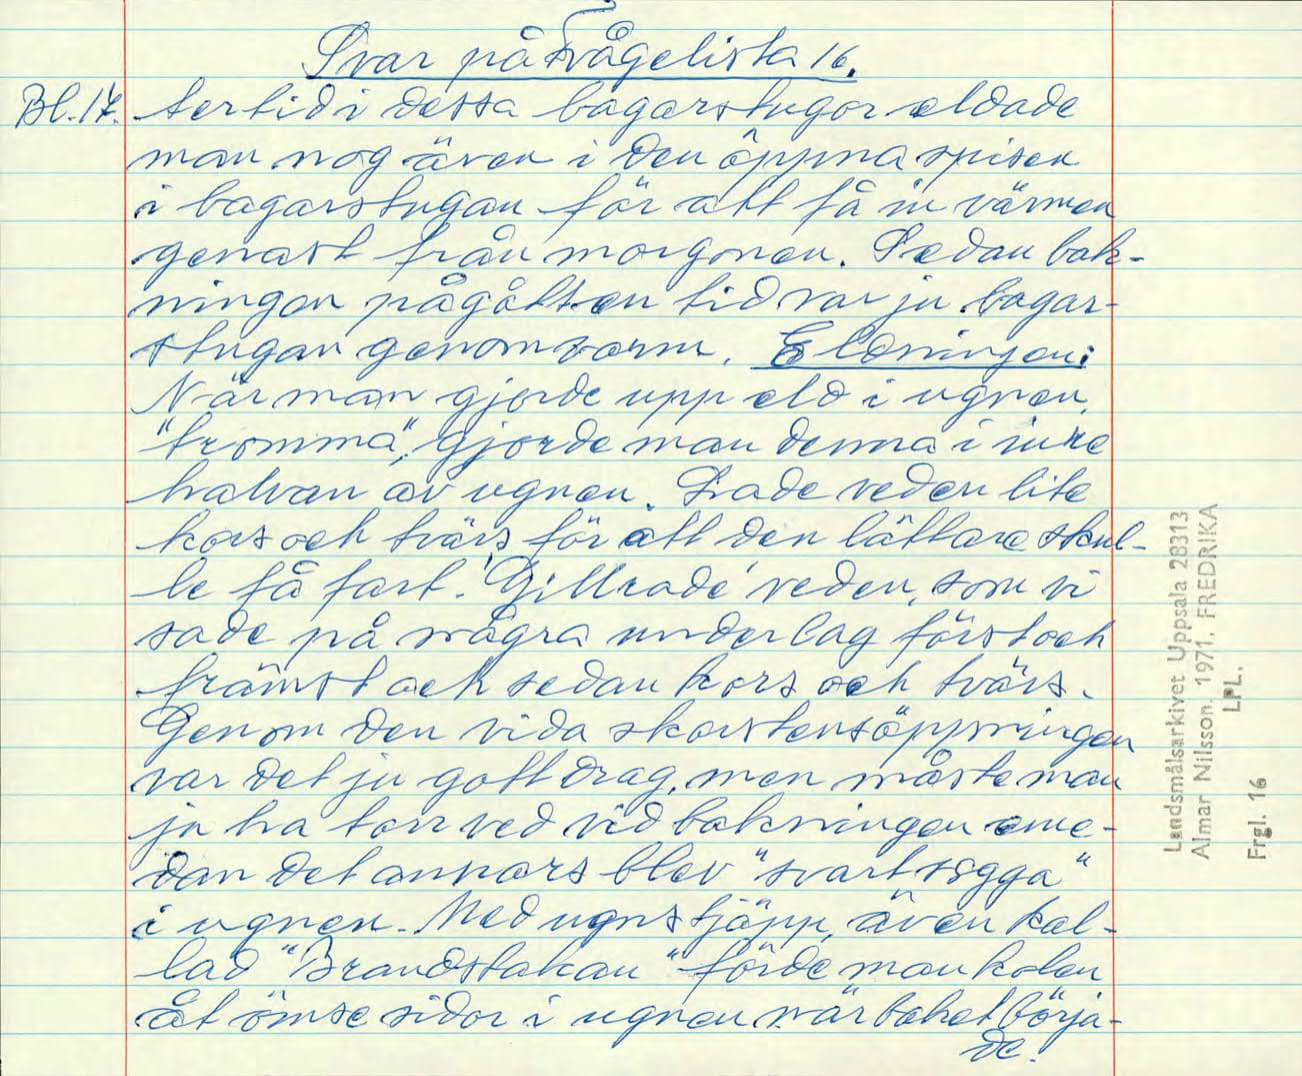 Svar på Frågelista 16.
Bl. 17. tertid i dessa bagarstugor eldade
man nog även i den öppna spisen
i bagarstugan för att få in värmen
genast från morgonen. Sedan bak-
ningen pågått en tid var ju bagar-
stugan genomvarm. Eldningen:
När man gjorde upp eld i ugnen,
"bromma", gjorde man denna i inre
halvan av ugnen. Lade veden lite
kors och tvärs för att den lättare skul-
le få fart. "Gillrade" veden, som vi
sade på några underlag först och
främst och sedan kors och tvärs.
Genom den vida skorstensöppningen
var det ju gott drag, men måste man
ju ha torr ved vid bakningen eme-
dan det annars blev "svartsögga"
i ugnen. Med ugnstjäpp, även kal-
lad "Brandstakan" förde man kolen
åt ömse sidor i ugnen när baket börja-
de.
Landsmålsarkivet Uppsala 28313
Almar Nilsson. 1971. FREDRIKA
LPL.
Frgl. 16